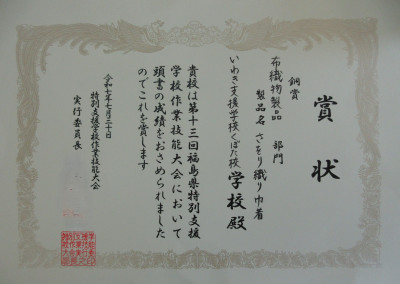 賞状
銅賞
布織物製品 部門
製品名 さをり織り巾着
いわき支援学校くぼた校
学校殿
貴校は第十三回福島県特別支援
学校作業技能大会において
頭書の成績をおさめられました
のでこれを賞します
令和七年七月三十日
特別支援学校作業技能大会
実行委員長